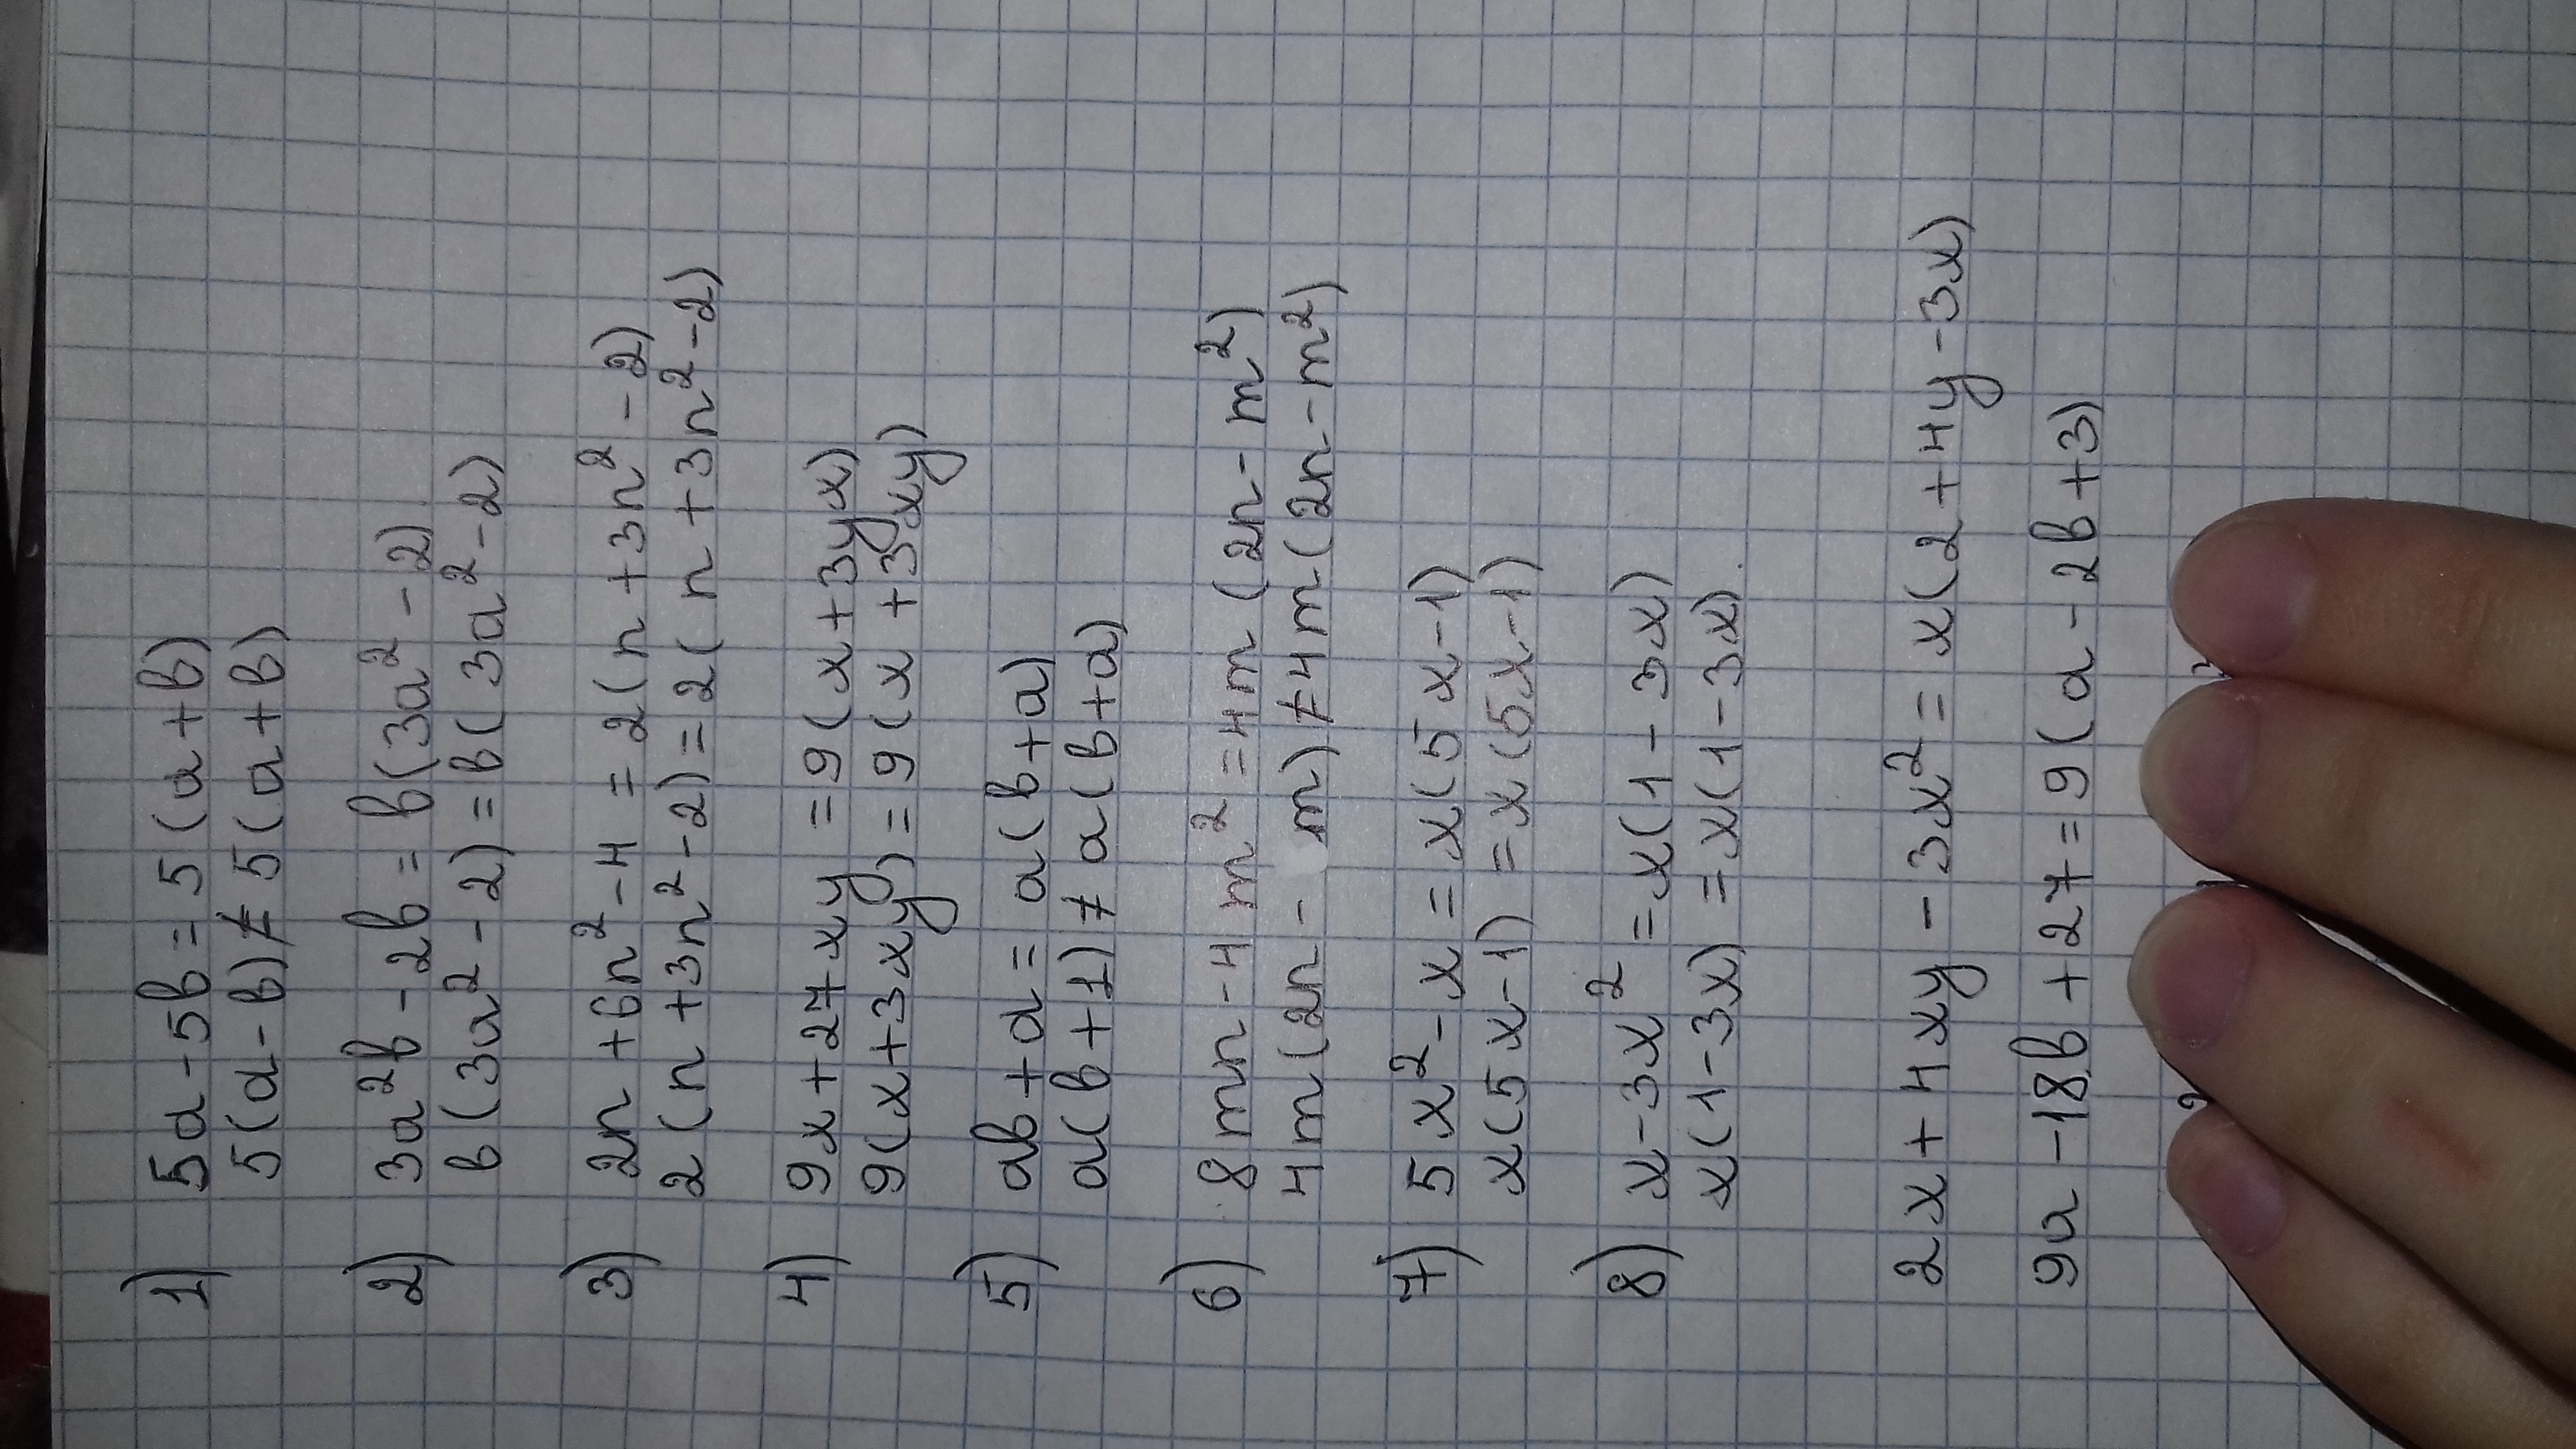 1) 5a-5b=5(a+b)
5(a-b)≠5(a+b)
2) 3a²b-2b=b(3a²-2)
b(3a²-2)=b(3a²-2)
3) 2n+6n²-4=2(n+3n²-2)
2(n+3n²-2)=2(n+3n²-2)
4) 9x+27xy=9(x+3yx)
9(x+3xy)=9(x+3xy)
5) ab+a=a(b+a)
a(b+1)≠a(b+a)
6) 8mn-4m²=4m(2n-m²)
4m(2n-m)≠4m(2n-m²)
7) 5x²-x=x(5x-1)
x(5x-1)=x(5x-1)
8) x-3x²=x(1-3x)
x(1-3x)=x(1-3x).
2x+4xy-3x²=x(2+4y-3x)
9a-18b+27=9(a-2b+3)